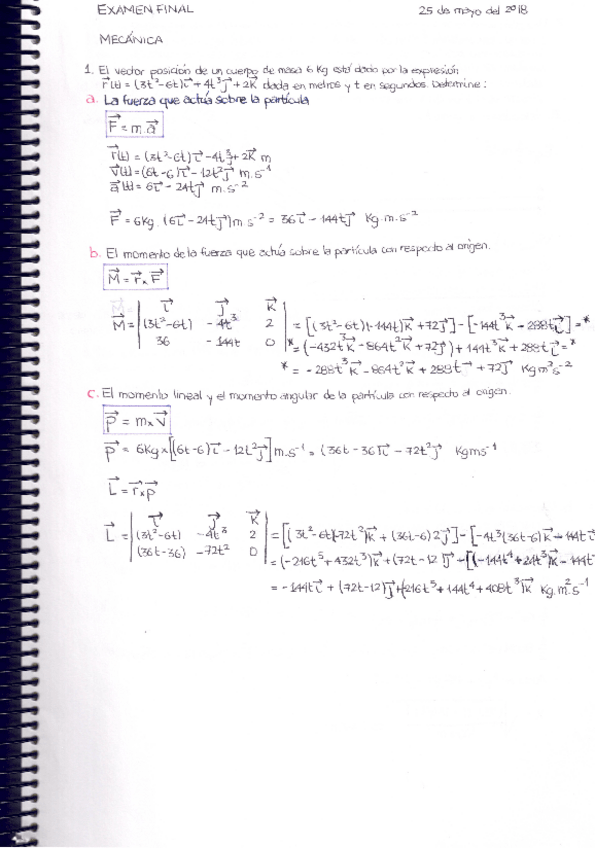 EXAMEN FINAL 25 de mayo del 2018
MECÁNICA
1. El vector posición de un cuerpo de masa 6 Kg está dado por la expresión
r(t) = (3t²-6t)i + 4t³j + 2K dada en metros y t en segundos. Determine:
a. La fuerza que actúa sobre la partícula
F = m.a
r(t) = (3t²-6t)i - 4t³j + 2K m
v(t) = (6t-6)i - 12t²j m.s⁻¹
a(t) = 6i - 24tj m.s⁻²
F = 6Kg. (6i - 24tj)m s⁻² = 36i - 144tj Kg.m.s⁻²
b. El momento de la fuerza que actúa sobre la partícula con respecto al origen.
M = r x F
i j K
M = (3t²-6t) -4t³ 2 = [(3t²-6t)(-144t)K + 72j] - [-144t³K - 288ti] = *
36 -144t 0 * = (-432t³K - 864t²K + 72j) + 144t³K + 288ti = *
* = -288t³K - 864t²K + 288t i + 72j Kg m²s⁻²
c. El momento lineal y el momento angular de la partícula con respecto al origen.
p = m x v
p = 6Kg x [(6t-6)i - 12t²j] m.s⁻¹ = (36t-36)i - 72t²j Kgms⁻¹
L = r x p
i j K
L = (3t²-6t) -4t³ 2 = [(3t²-6t)(-72t²)K + (36t-6)2j] - [-4t³(36t-6)K - 144t i
(36t-36) -72t² 0 = (-216t⁵ + 432t³)K + (72t-12)j - [(-144t⁴ + 24t³)K - 144t
= -144ti + (72t-12)j + (216t⁵ + 144t⁴ + 408t³)K Kg.m².s⁻¹